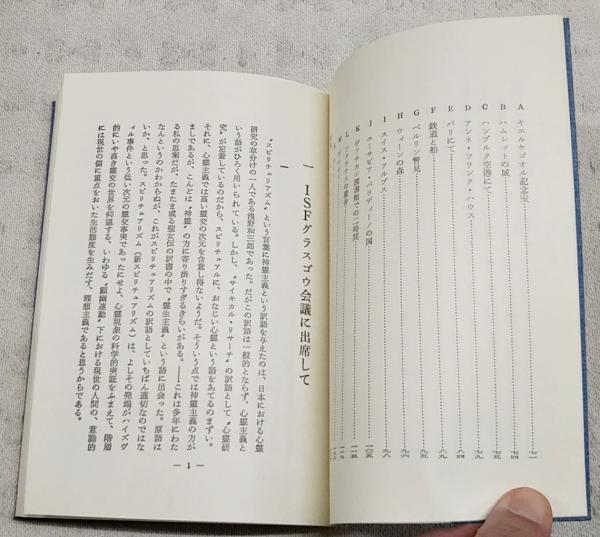 A キエルケゴオル記念室……七一
B ハムレットの城……七四
C ハンブルク空港にて……七五
D アンネ・フランク・ハウス……七九
E パリにて……八四
F 鉄道と船……九〇
G ベルリン瞥見……九五
H ウィーンの森……九六
I スイス・アルプス……九八
J ユーサピア・パラディーノの国……一〇五
K ヴァチカン図書館での二時間……一一五
L
一 ISFグラスゴウ会議に出席して
一
〝スピリチュアリズム〟という言葉に神霊主義という訳語を与えたのは、日本における心霊
研究の草分けの一人である浅野和三郎であった。だがこの訳語は一般的とならず、心霊主義と
いう語がひろく用いられている。しかし、〝サイキカル・リサーチ〟の訳語として〝心霊研
究〟が定着しているのだから、スピリチュアルに、おなじい心霊という語をあてるのまずい。
それに、心霊主義では高い霊交の次元を含意し得ないようだ。そういう点では神霊主義の方が
ましであるが、こんどは〝神霊〟の方に寄り掛りすぎるきらいがある。――これは多年にわた
る私の思案だが、たまたま或る聖女伝の訳書の中で〝霊生主義〟という語に出会った。原語は
なんというのかわからぬが、これがスピリチュアリズムの訳語としていちばん適切なのではな
いか、と思った。スピリチュアリズム（新スピリチュアリズム）は、よしその発端がハイズヴ
ィル事件という低い次元の霊交事実であったにせよ、心霊現象の科学的実証をふまえて、階層
的にいや高き霊交の世界を仰望する、いわゆる〝顕幽連動〟下における現世の人間の、意識的
には現世の個に重点をおいた生活態度を生みだす、理想主義であると思うからである。
— 1 —